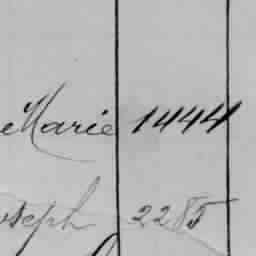 Marie 1444
oseph 2285